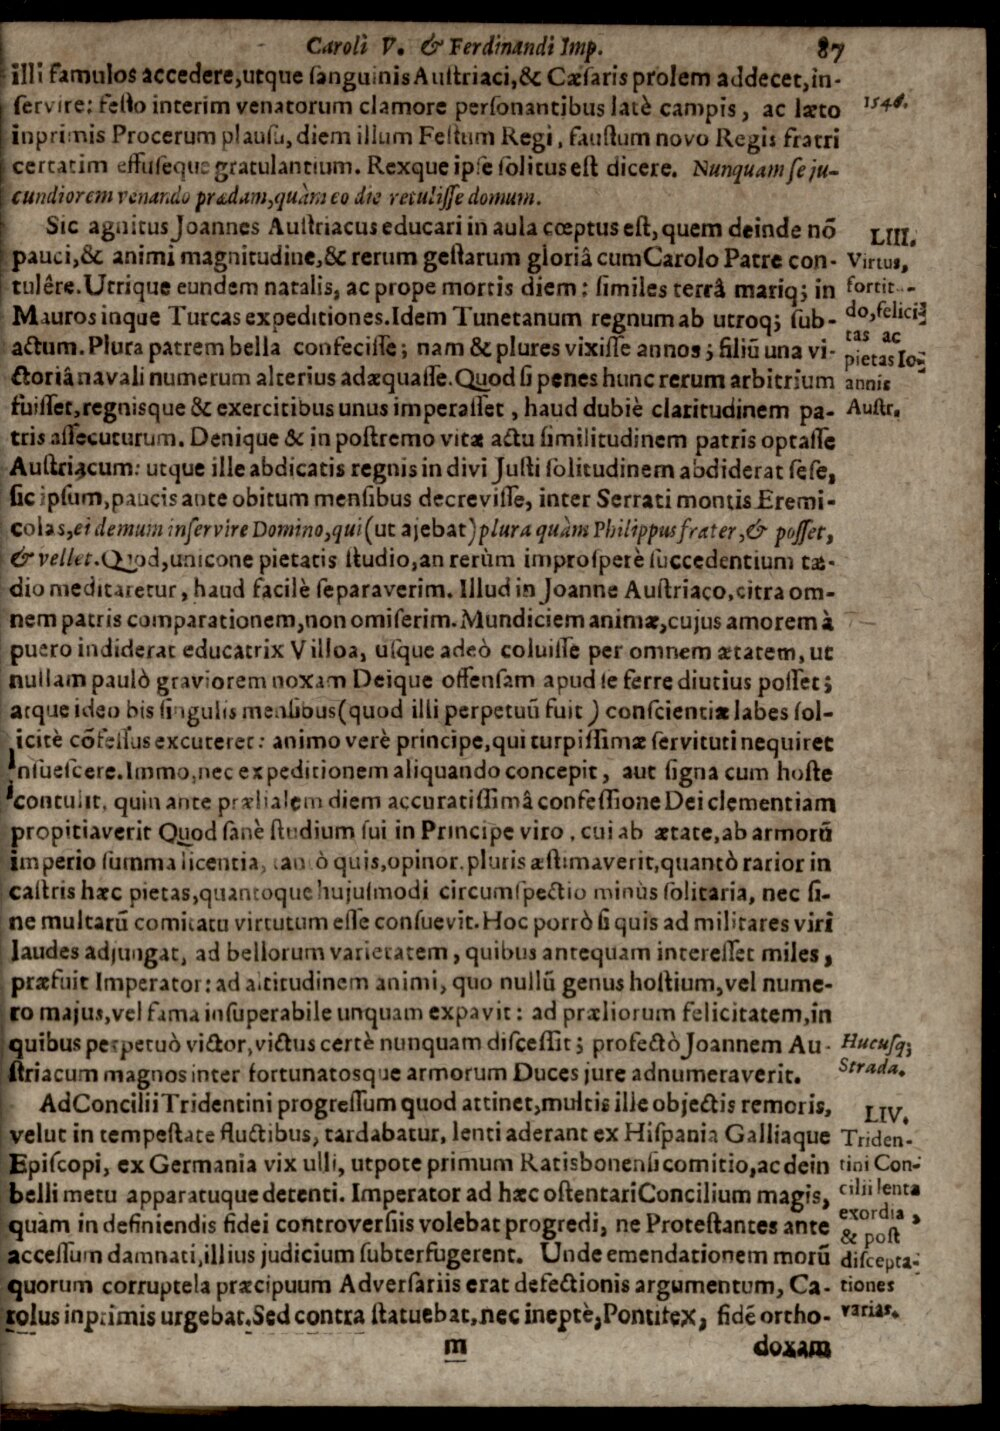 Caroli V. & Ferdinandi Imp. 87
illi famulos accedere,utque ſanguinis Auſtriaci,& Cæſaris prolem addecet,in-
ſervire: feſto interim venatorum clamore perſonantibus latè campis, ac læto
inprimis Procerum plauſu, diem illum Feſtum Regi, fauſtum novo Regis fratri
certatim effuſeque gratulantium. Rexque ipſe ſolitus eſt dicere. Nunquam ſe ju-
cundiorem venando prædam,quàm eo die retuliſſe domum.
Sic agnitus Joannes Auſtriacus educari in aula cœptus eſt, quem deinde nõ
pauci,& animi magnitudine,& rerum geſtarum gloriâ cum Carolo Patre con-
tulêre. Utrique eundem natalis, ac prope mortis diem: ſimiles terrâ mariq; in
Mauros inque Turcas expeditiones. Idem Tunetanum regnum ab utroq; ſub-
actum. Plura patrem bella confeciſſe; nam & plures vixiſſe annos; filiũ una vi-
ctoriâ navali numerum alterius adæquaſſe. Quod ſi penes hunc rerum arbitrium
fuiſſet,regnisque & exercitibus unus imperaſſet, haud dubiè claritudinem pa-
tris aſſecuturum. Denique & in poſtremo vitæ actu ſimilitudinem patris optaſſe
Auſtriacum: utque ille abdicatis regnis in divi Juſti ſolitudinem abdiderat ſeſe,
ſic ipſum,paucis ante obitum menſibus decreviſſe, inter Serrati montis Eremi-
colas,ei demum inſervire Domino,qui (ut ajebat) plura quàm Philippus frater,& poſſet,
& vellet. Quod,unicone pietatis ſtudio,an rerùm improſperè ſuccedentium tæ-
dio meditaretur, haud facilè ſeparaverim. Illud in Joanne Auſtriaco,citra om-
nem patris comparationem,non omiſerim. Mundiciem animæ,cujus amorem à
puero indiderat educatrix Villoa, uſque adeò coluiſſe per omnem ætatem, ut
nullam paulò graviorem noxam Deique offenſam apud ſe ferre diutius poſſet;
atque ideo bis ſingulis menſibus (quod illi perpetuũ fuit) conſcientiæ labes ſol-
icitè cõfeſſus excuteret: animo verè principe,qui turpiſſimæ ſervituti nequiret
inſueſcere. Immo,nec expeditionem aliquando concepit, aut ſigna cum hoſte
contulit, quin ante prælialem diem accuratiſſimâ confeſſione Dei clementiam
propitiaverit Quod ſanè ſtudium ſui in Principe viro, cui ab ætate,ab armorũ
imperio ſumma licentia, tantò quis,opinor. pluris æſtimaverit,quantò rarior in
caſtris hæc pietas,quantoque hujuſmodi circumſpectio minùs ſolitaria, nec ſi-
ne multarũ comitatu virtutum eſſe conſuevit. Hoc porrò ſi quis ad militares viri
laudes adjungat, ad bellorum varietatem, quibus antequam intereſſet miles,
præfuit Imperator: ad altitudinem animi, quo nullũ genus hoſtium,vel nume-
ro majus,vel fama inſuperabile unquam expavit: ad præliorum felicitatem,in
quibus perpetuò victor,victus certè nunquam diſceſſit; profectò Joannem Au-
ſtriacum magnos inter fortunatosque armorum Duces jure adnumeraverit.
Ad Concilii Tridentini progreſſum quod attinet,multis ille objectis remoris,
velut in tempeſtate fluctibus, tardabatur, lenti aderant ex Hiſpania Galliaque
Epiſcopi, ex Germania vix ulli, utpote primum Ratisbonenſi comitio,ac dein
belli metu apparatuque detenti. Imperator ad hæc oſtentari Concilium magis,
quàm in definiendis fidei controverſiis volebat progredi, ne Proteſtantes ante
acceſſum damnati,illius judicium ſubterfugerent. Unde emendationem morũ
quorum corruptela præcipuum Adverſariis erat defectionis argumentum, Ca-
rolus inprimis urgebat. Sed contra ſtatuebat,nec ineptè,Pontifex, fidẽ ortho-
m doxam
1546.
LIII.
Virtus,
fortit-
do,felici-
tas ac
pietas Io-
annis
Auſtr.
Hucuſq;
Strada.
LIV.
Triden-
tini Con-
cilii lenta
exordia,
& poſt
diſcepta-
tiones
varias.